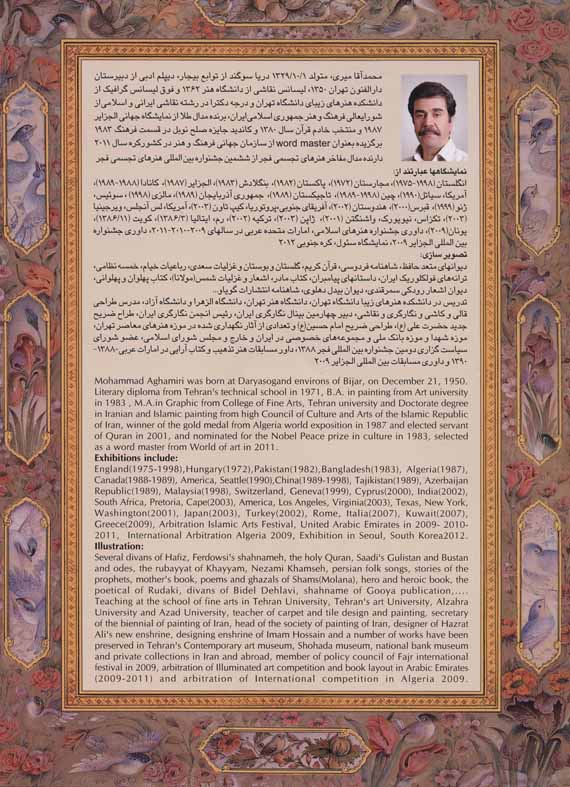 محمدآقا میری، متولد ۱۳۲۹/۱۰/۱ دریا سوگند از توابع بیجار، دیپلم ادبی از دبیرستان
دارالفنون تهران ۱۳۵۰، لیسانس نقاشی از دانشگاه هنر ۱۳۶۲ و فوق لیسانس گرافیک از
دانشکده هنرهای زیبای دانشگاه تهران و درجه دکترا در رشته نقاشی ایرانی و اسلامی از
شورایعالی فرهنگ و هنر جمهوری اسلامی ایران، برنده مدال طلا از نمایشگاه جهانی الجزایر
۱۹۸۷ و منتخب خادم قرآن سال ۱۳۸۰ و کاندید جایزه صلح نوبل در قسمت فرهنگ ۱۹۸۳
برگزیده بعنوان word master از سازمان جهانی فرهنگ و هنر در کشور کره سال ۲۰۱۱
دارنده مدال مفاخر هنرهای تجسمی فجر از ششمین جشنواره بین المللی هنرهای تجسمی فجر
نمایشگاهها عبارتند از:
انگلستان (۱۹۹۸-۱۹۷۵)، مجارستان (۱۹۷۲)، پاکستان (۱۹۸۲)، بنگلادش (۱۹۸۳)، الجزایر (۱۹۸۷)، کانادا (۱۹۸۸-۱۹۸۹)،
آمریکا، سیاتل (۱۹۹۰)، چین (۱۹۹۸-۱۹۸۹)، تاجیکستان (۱۹۸۹)، جمهوری آذربایجان (۱۹۸۹)، مالزی (۱۹۹۸)، سوئیس،
ژنو (۱۹۹۹)، قبرس (۲۰۰۰)، هندوستان (۲۰۰۲)، آفریقای جنوبی پروتوریا، کیپ تاون (۲۰۰۳)، آمریکا، لس آنجلس، ویرجینیا
(۲۰۰۳)، تکزاس، نیویورک، واشنگتن (۲۰۰۱)، ژاپن (۲۰۰۳)، ترکیه (۲۰۰۲)، رم، ایتالیا (۱۳۸۶/۳)، کویت (۱۳۸۶/۱۱)،
یونان (۲۰۰۹)، داوری جشنواره هنرهای اسلامی، امارات متحده عربی در سالهای ۲۰۰۹-۲۰۱۰-۲۰۱۱، داوری جشنواره
بین المللی الجزایر ۲۰۰۹، نمایشگاه سئول، کره جنوبی ۲۰۱۲
تصویر سازی:
دیوانهای متعد حافظ، شاهنامه فردوسی، قرآن کریم، گلستان و بوستان و غزلیات سعدی، رباعیات خیام، خمسه نظامی،
ترانه های فولکلوریک ایران، داستانهای پیامبران، کتاب مادر، اشعار و غزلیات شمس (مولانا)، کتاب پهلوان و پهلوانی،
دیوان اشعار رودکی سمرقندی، دیوان بیدل دهلوی، شاهنامه انتشارات گویا و..
تدریس در دانشکده هنرهای زیبا دانشگاه تهران، دانشگاه هنر تهران، دانشگاه الزهرا و دانشگاه آزاد، مدرس طراحی
قالی و کاشی و نگارگری و نقاشی، دبیر چهارمین بینال نگارگری ایران، رئیس انجمن نگارگری ایران، طراح ضریح
جدید حضرت علی (ع)، طراحی ضریح امام حسین (ع) و تعدادی از آثار نگهداری شده در موزه هنرهای معاصر تهران،
موزه شهدا و موزه بانک ملی و مجموعه های خصوصی در ایران و خارج و مجلس شورای اسلامی، عضو شورای
سیاست گزاری دومین جشنواره بین المللی فجر ۱۳۸۸، داور مسابقات هنر تذهیب و کتاب آرایی در امارات عربی ۱۳۸۸-
۱۳۹۰ و داوری مسابقات بین المللی الجزایر ۲۰۰۹
Mohammad Aghamiri was born at Daryasogand environs of Bijar, on December 21, 1950.
Literary diploma from Tehran's technical school in 1971, B.A. in painting from Art university
in 1983 , M.A.in Graphic from College of Fine Arts, Tehran university and Doctorate degree
in Iranian and Islamic painting from high Council of Culture and Arts of the Islamic Republic
of Iran, winner of the gold medal from Algeria world exposition in 1987 and elected servant
of Quran in 2001, and nominated for the Nobel Peace prize in culture in 1983, selected
as a word master from World of art in 2011.
Exhibitions include:
England(1975-1998),Hungary(1972),Pakistan(1982),Bangladesh(1983), Algeria(1987),
Canada(1988-1989), America, Seattle(1990),China(1989-1998), Tajikistan(1989), Azerbaijan
Republic(1989), Malaysia(1998), Switzerland, Geneva(1999), Cyprus(2000), India(2002),
South Africa, Pretoria, Cape(2003), America, Los Angeles, Virginia(2003), Texas, New York,
Washington(2001), Japan(2003), Turkey(2002), Rome, Italia(2007), Kuwait(2007),
Greece(2009), Arbitration Islamic Arts Festival, United Arabic Emirates in 2009- 2010-
2011, International Arbitration Algeria 2009, Exhibition in Seoul, South Korea2012.
Illustration:
Several divans of Hafiz, Ferdowsi's shahnameh, the holy Quran, Saadi's Gulistan and Bustan
and odes, the rubayyat of Khayyam, Nezami Khamseh, persian folk songs, stories of the
prophets, mother's book, poems and ghazals of Shams(Molana), hero and heroic book, the
poetical of Rudaki, divans of Bidel Dehlavi, shahname of Gooya publication,....
Teaching at the school of fine arts in Tehran University, Tehran's art University, Alzahra
University and Azad University, teacher of carpet and tile design and painting, secretary
of the biennial of painting of Iran, head of the society of painting of Iran, designer of Hazrat
Ali's new enshrine, designing enshrine of Imam Hossain and a number of works have been
preserved in Tehran's Contemporary art museum, Shohada museum, national bank museum
and private collections in Iran and abroad, member of policy council of Fajr international
festival in 2009, arbitration of Illuminated art competition and book layout in Arabic Emirates
(2009-2011) and arbitration of International competition in Algeria 2009.